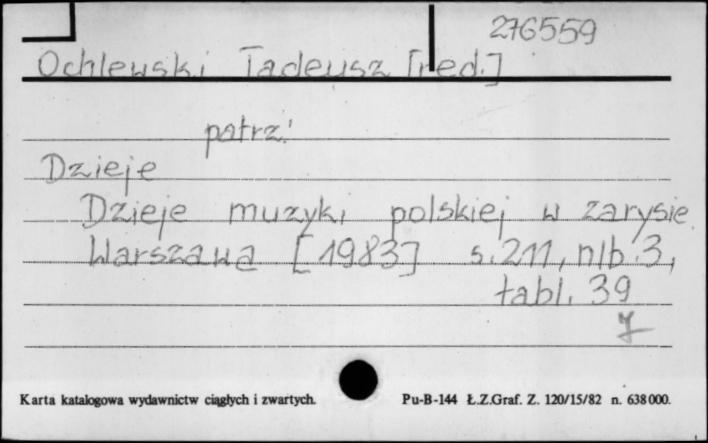 276559
Ochlewski Tadeusz [red.]
patrz:
Dzieje
Dzieje muzyki polskiej w zarysie
Warszawa [1983] s. 211, nlb. 3,
tabl. 39
Karta katalogowa wydawnictw ciągłych i zwartych. Pu-B-144 Ł.Z.Graf. Z. 120/15/82 n. 638000.